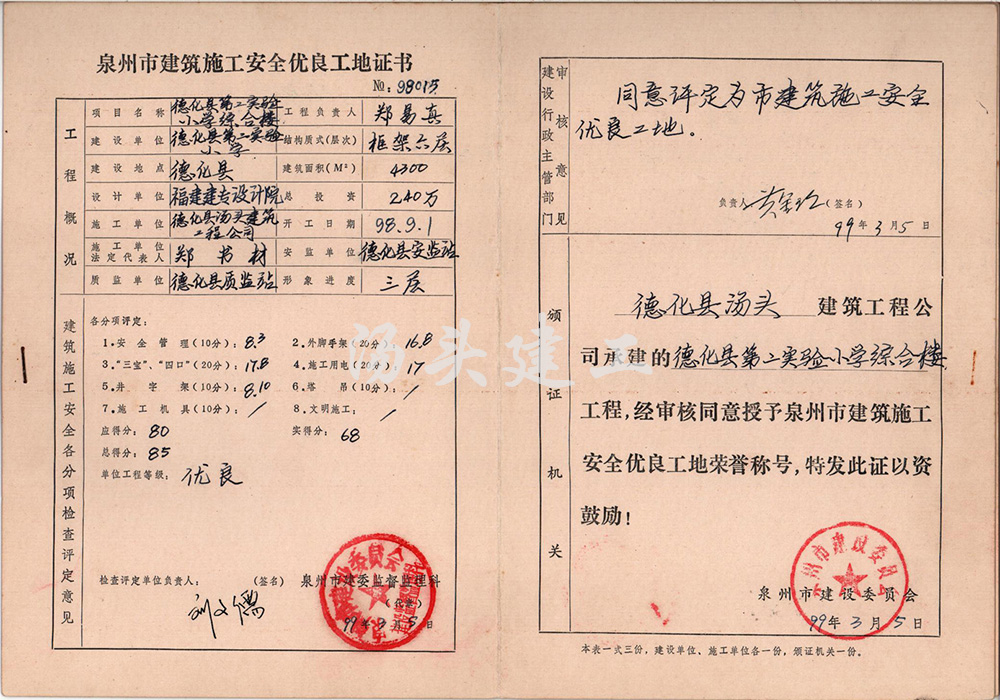 泉州市建筑施工安全优良工地证书
№:98015
工程概况
项目名称 德化县第二实验小学综合楼 工程负责人 郑易真
建设单位 德化县第二实验小学 结构质式(层次) 框架六层
建设地点 德化县 建筑面积(M²) 4300
设计单位 福建建专设计院 总投资 240万
施工单位 德化县汤头建筑工程公司 开工日期 98.9.1
施工单位法定代表人 郑书材 安监单位 德化县安监站
质监单位 德化县质监站 形象进度 三层
建筑施工安全各分项检查评定意见
各分项评定:
1.安全管理(10分): 8.3 2.外脚手架(20分): 16.8
3.“三宝”、“四口”(20分): 17.8 4.施工用电(20分): 17
5.井字架(10分): 8.10 6.塔吊(10分): /
7.施工机具(10分): / 8.文明施工: /
应得分: 80 实得分: 68
总得分: 85
单位工程等级: 优良
检查评定单位负责人: (签名) 泉州市建委监督监理科
(代章)
99年3月5日
建设行政主管部门审核意见
同意评定为市建筑施工安全
优良工地。
负责人 (签名)
99年3月5日
颁证机关
德化县汤头 建筑工程公
司承建的德化县第二实验小学综合楼
工程,经审核同意授予泉州市建筑施工
安全优良工地荣誉称号,特发此证以资
鼓励!
泉州市建设委员会
泉州市建设委员会
99年3月5日
本表一式三份,建设单位、施工单位各一份,颁证机关一份。
汤头建工